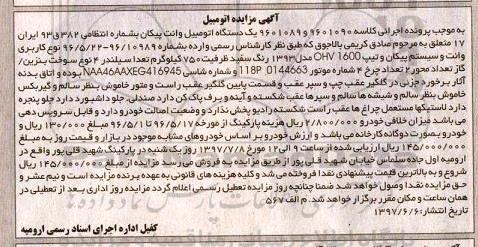 آگهی مزایده اتومبیل
به موجب پرونده اجرائی کلاسه ۹۶۰۱۰۹۰ و ۹۶۰۱۰۸۹ یک دستگاه اتومبیل وانت پیکان بشماره انتظامی ۳۸۲ ق ۹۳ ایران
۱۷ متعلق به مرحوم صادق کریمی بالاجوق که طبق نظر کارشناس رسمی وارده بشماره ۹۶/۱۰۹۸۹-۹۶/۵/۲۲ نوع کاربری
وانت و سیستم پیکان و تیپ OHV 1600 مدل ۱۳۹۳ رنگ سفید ظرفیت ۷۵۰ کیلوگرم تعدا سیلندر ۴ نوع سوخت بنزین/
گاز تعداد محور ۲ تعداد چرخ ۴ شماره موتور 118P 0144663 و شماره شاسی NAA46AAXEG416945 بوده و اتاق بدنه
آثار برخورد جزئی در گلگیر عقب چپ و سپر عقب و قسمت پایین گلگیر عقب راست و متور خاموش بنظر سالم و گیربکس
خاموش بنظر سالم و شیشه ها سالم و سپرها عقب شکسته و آینه و برف پاک کن دارد صندلی، جلو داشبورد دارد جلو پنجره
دارد لاستیکها مستعمل چراغ ها عقب راست شکسته رادیو پخش ندارد و وضعیت اصالت خودرو دارد و قابل سرویس دهی
می باشد میزان خلافی خودرو ۲/۸۰۰/۰۰۰ ریال هزینه پارکینگ از مورخه ۹۶/۵/۱۷ تا ۹۶/۵/۱ مبلغ ۱۳۰/۰۰۰ ریال و
خودرو بصورت دوگانه کارخانه می باشد و ارزش خودرو بر اساس خودروهای مشابه موجود در بازار و قیمت روز به مبلغ
۱۴۵/۰۰۰/۰۰۰ ریال ارزیابی شده از ساعت ۹ الی ۱۲ مورخ ۱۳۹۷/۷/۸ روز یک شنبه در پارکینگ شهید قلی پور واقع در
ارومیه اول جاده سلماس خیابان شهید قلی پور از طریق مزایده به فروش می رسد مزایده از مبلغ ۱۴۵/۰۰۰/۰۰۰ ریال
شروع و به بالاترین قیمت پیشنهادی نقدا فروخته می شد و کلیه هزینه های قانونی به عهده برنده مزایده است و نیم عشر و
حق مزایده نقدا وصول خواهد شد ضمنا چنانچه روز مزایده تعطیل رسمی اعلام گردد مزایده روز اداری بعد از تعطیلی در
همان ساعت و مکان مقرر برگزار خواهد شد. م الف ۵۶۷
تاریخ انتشار: ۱۳۹۷/۶/۶
کفیل اداره اجرای اسناد رسمی ارومیه